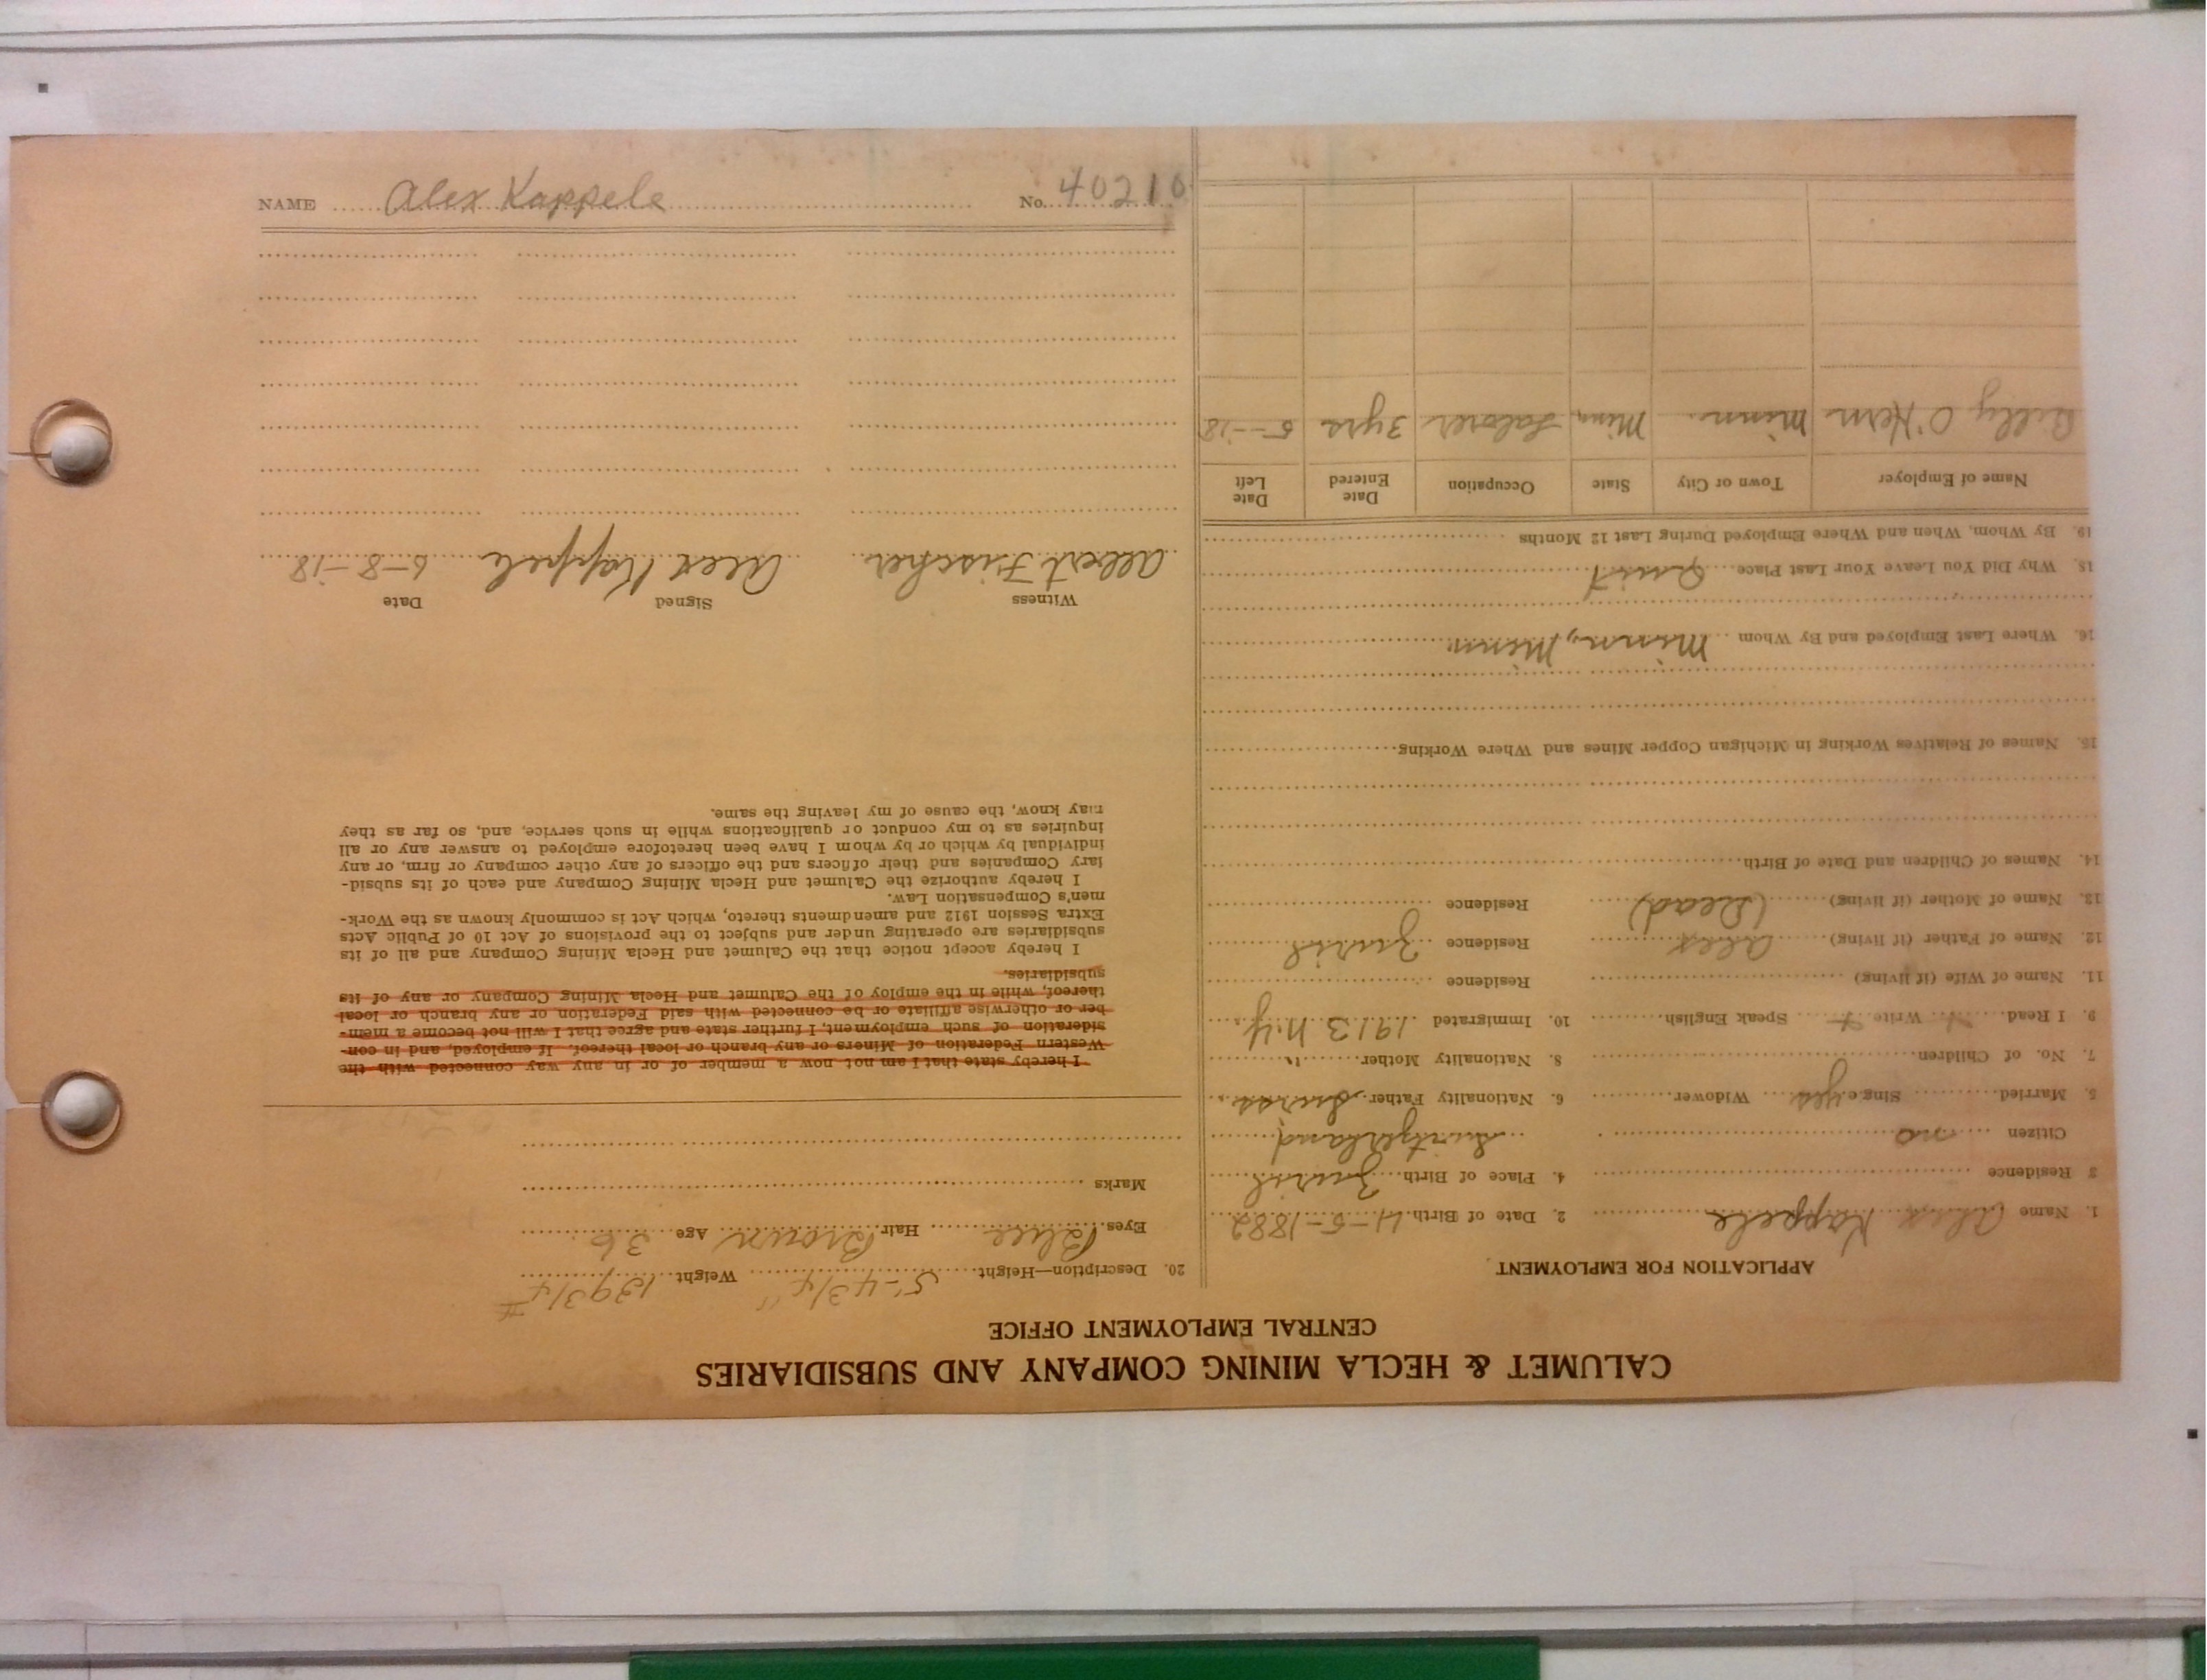 CALUMET & HECLA MINING COMPANY AND SUBSIDIARIES
CENTRAL EMPLOYMENT OFFICE
APPLICATION FOR EMPLOYMENT
1. Name Alex Kappele 2. Date of Birth 4-5-1882
3 Residence 4. Place of Birth Zurich
Citizen no Switzerland
5. Married Single yes Widower 6. Nationality Father Swiss
7. No. of Children 8. Nationality Mother "
9. I Read Write Speak English 10. Immigrated 1913 N.Y.
11. Name of Wife (if living) Residence
12. Name of Father (if living) Alex Residence Zurich
13. Name of Mother (if living) (Dead) Residence
14. Names of Children and Date of Birth
15. Names of Relatives Working in Michigan Copper Mines and Where Working
16. Where Last Employed and By Whom Minn, Minn.
18. Why Did You Leave Your Last Place Quit
19. By Whom, When and Where Employed During Last 12 Months
Name of Employer Town or City State Occupation Date Entered Date Left
O'Hern Minn. Minn Laborer 3 yrs 5--18
20. Description—Height 5'-4 3/4" Weight 139 3/4 #
Eyes Blue Hair Brown Age 36
Marks
I hereby state that I am not now a member of or in any way connected with the
Western Federation of Miners or any branch or local thereof. If employed, and in con-
sideration of such employment, I further state and agree that I will not become a mem-
ber or otherwise affiliate or be connected with said Federation or any branch or local
thereof, while in the employ of the Calumet and Hecla Mining Company or any of its
subsidiaries.
I hereby accept notice that the Calumet and Hecla Mining Company and all of its
subsidiaries are operating under and subject to the provisions of Act 10 of Public Acts
Extra Session 1912 and amendments thereto, which Act is commonly known as the Work-
men's Compensation Law.
I hereby authorize the Calumet and Hecla Mining Company and each of its subsid-
iary Companies and their officers and the officers of any other company or firm, or any
individual by which or by whom I have been heretofore employed to answer any or all
inquiries as to my conduct or qualifications while in such service, and, so far as they
may know, the cause of my leaving the same.
Witness Signed Date
Albert Fischer Alex Kappele 6-8-18
NAME Alex Kappele No. 40210